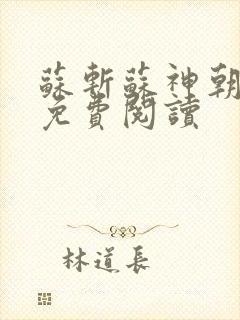 蘇斬蘇神朝
免費閱讀
林道長